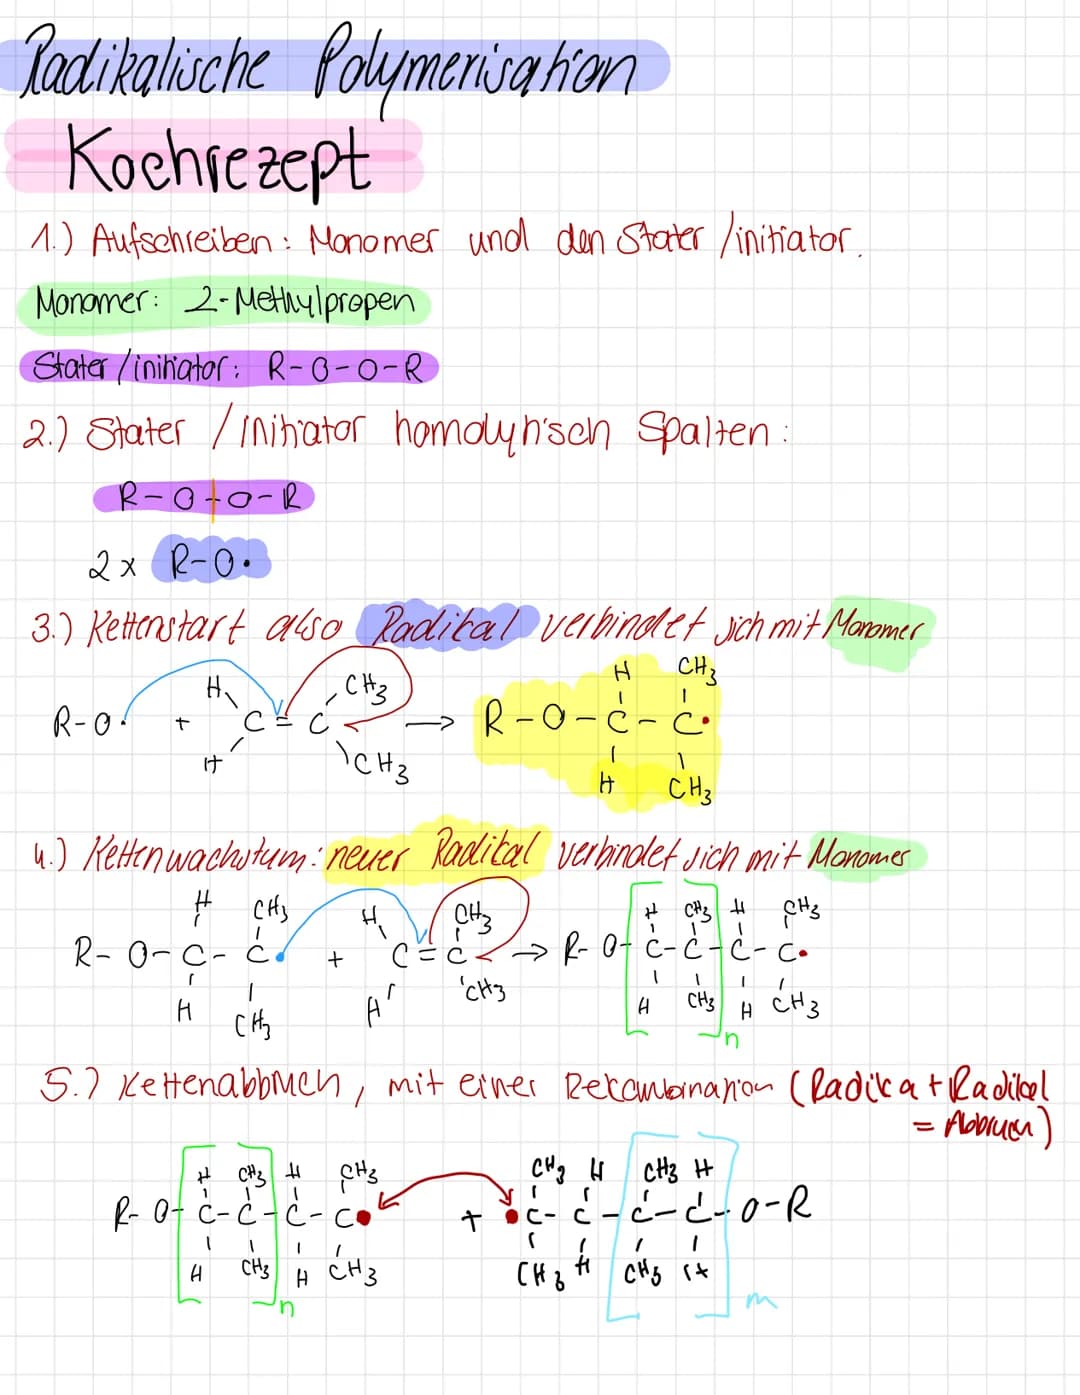 Radikalische Polymerisation
Kochrezept
1.) Aufschreiben: Monomer und den Stater /initiator.
Monomer: 2-Methylpropen
Stater /initiator: R-O-O-R
2.) Stater /initiator homolytisch Spalten:
R-O+O-R
2x R-O•
3.) Kettenstart also Radikal verbindet sich mit Monomer
H CH3
H CH3
R-O• + C = C → R-O-C-C•
H CH3
H CH3
4.) Kettenwachstum: neuer Radikal verbindet sich mit Monomer
H CH3 H CH3 H CH3 H CH3
R-O-C-C• + C=C → R-O-[C-C-]C-C•
H CH3 H CH3 H CH3 H CH3
n
5.) Kettenabbruch, mit einer Rekombination (Radika + Radikal
= Abbruch)
H CH3 H CH3 CH3 H CH3 H
R-O-[C-C-]C-C• + •C-C-[C-C-]O-R
H CH3 H CH3 CH3 H CH3 H
n m